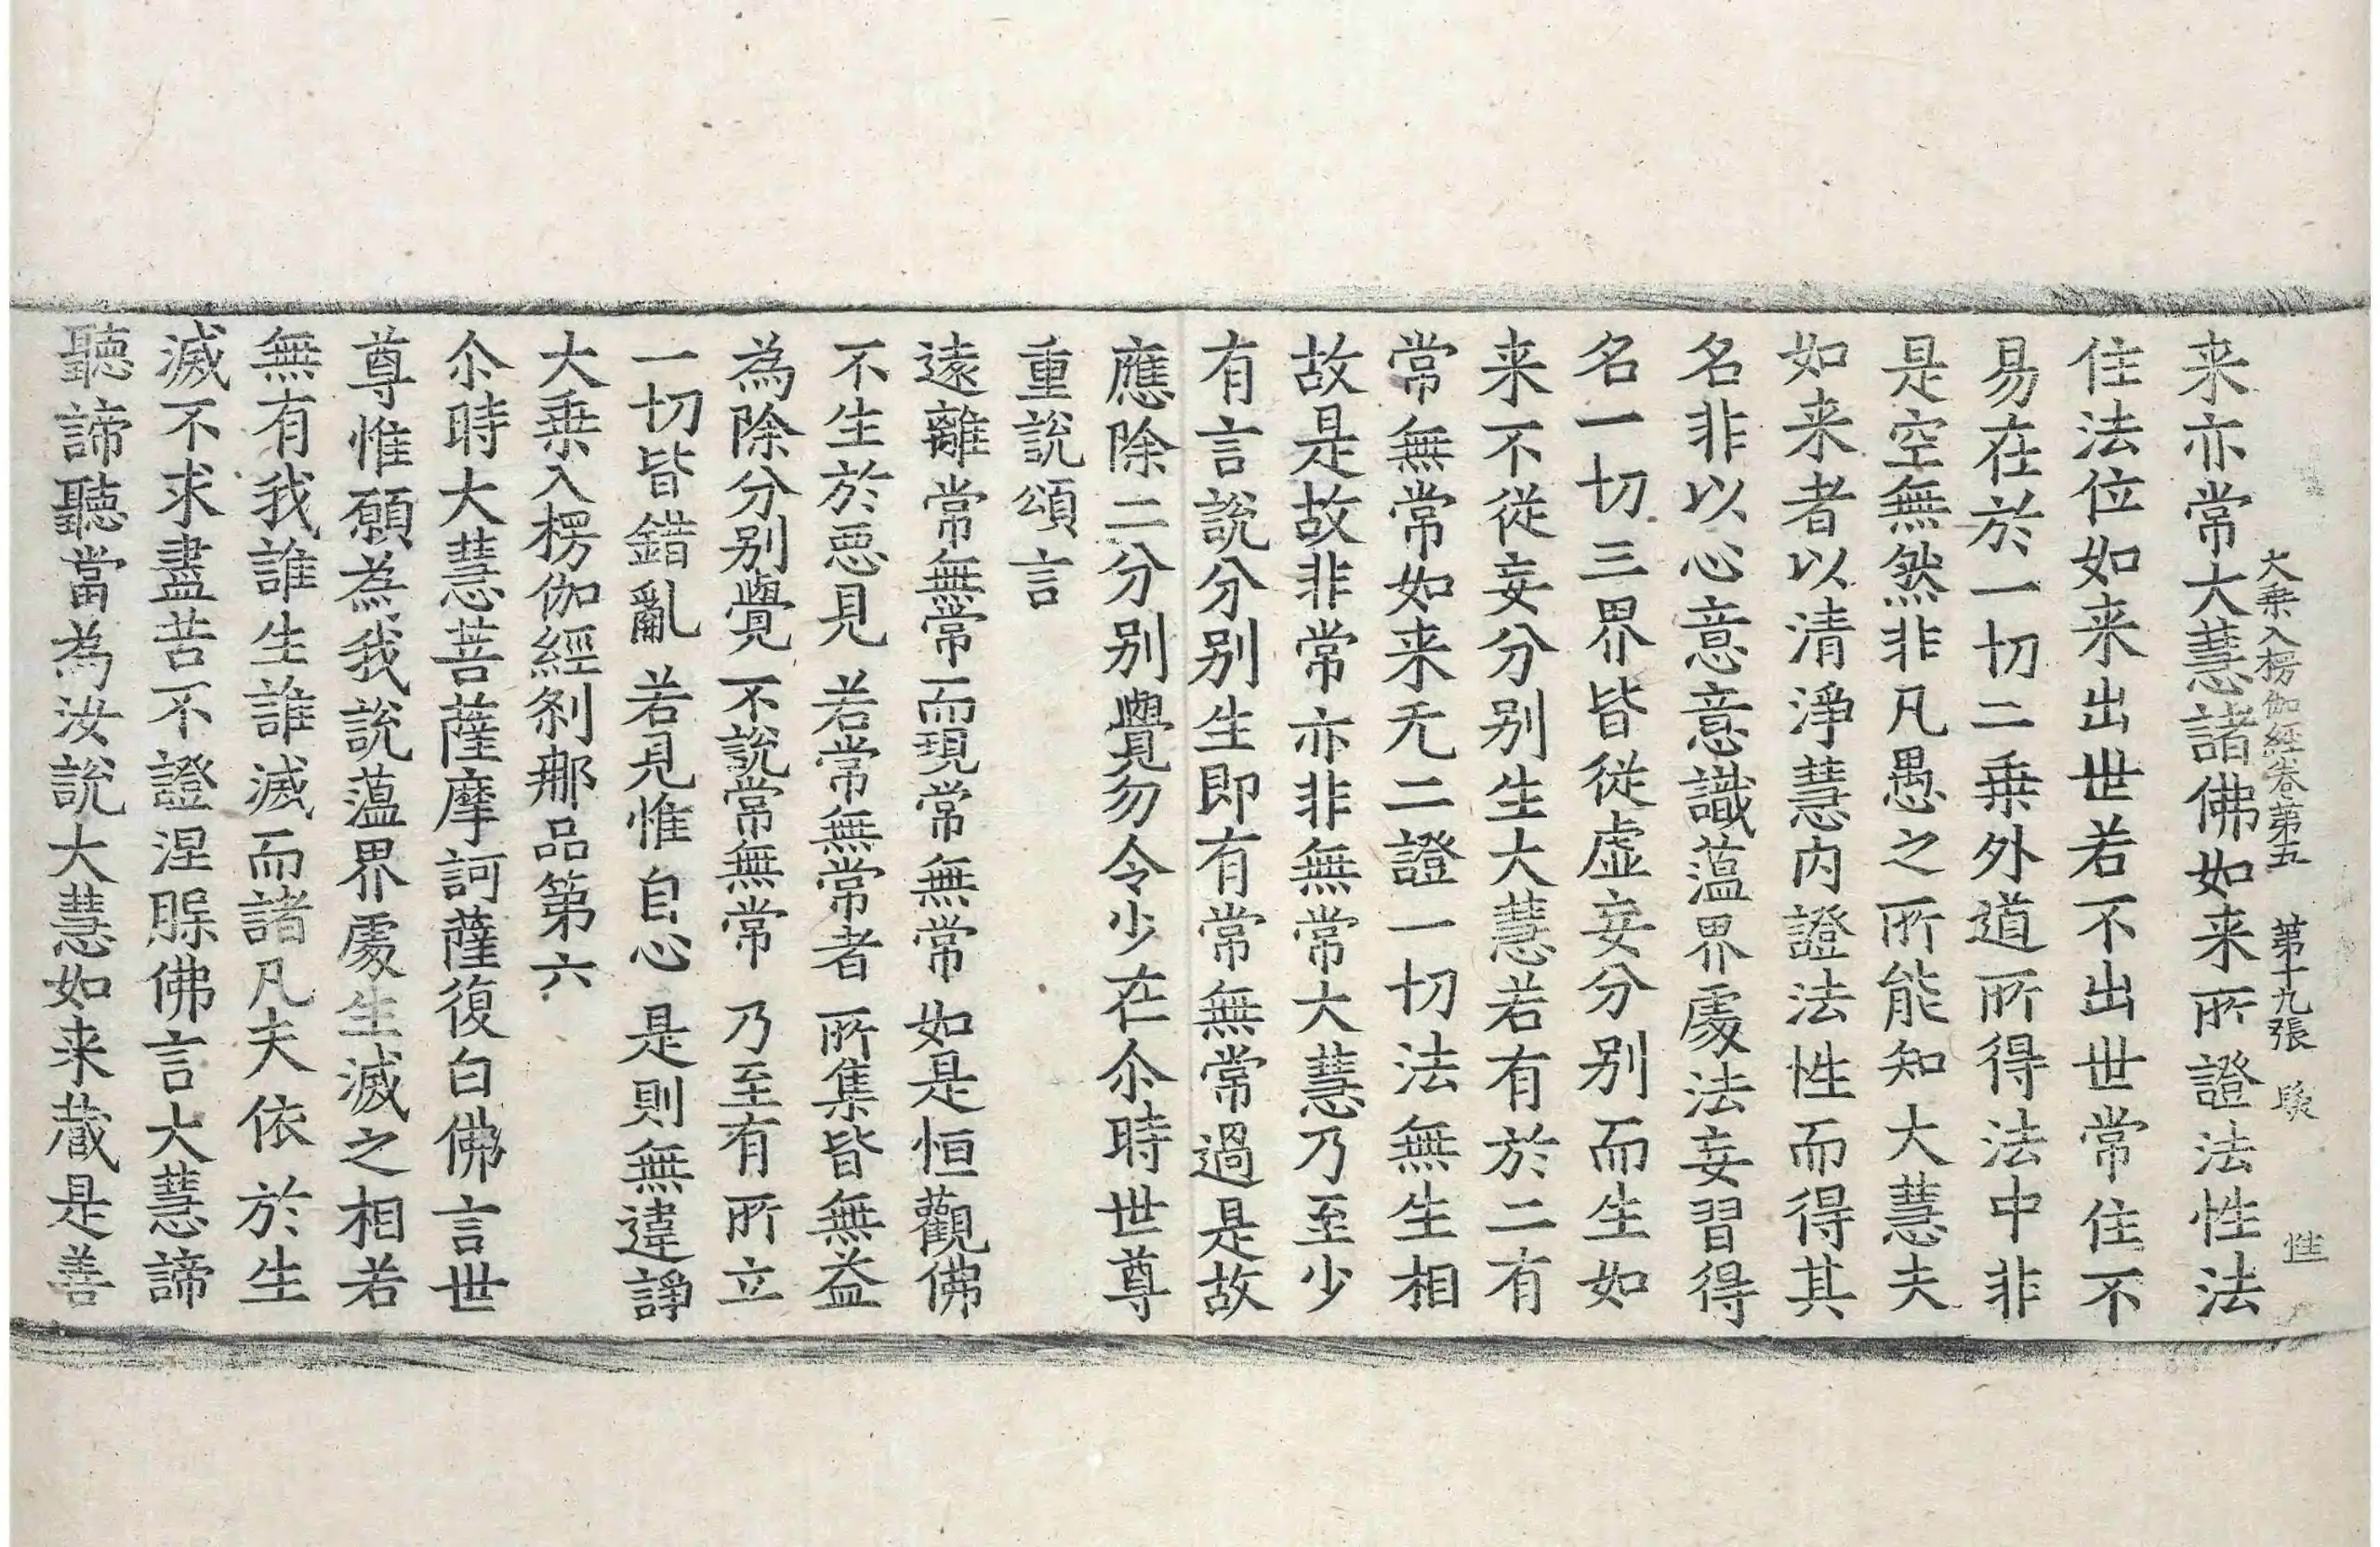 大乗入楞伽經卷第五 第十九張
来亦常大慧諸佛如来所證法性法
住法位如来出世若不出世常住不
易在於一切二乗外道所得法中非
是空無然非凡愚之所能知大慧夫
如来者以清淨慧内證法性而得其
名非以心意意識蕰界處法妄習得
名一切三界皆從虛妄分别而生如
来不從妄分别生大慧若有於二有
常無常如来无二證一切法無生相
故是故非常亦非無常大慧乃至少
有言說分别生即有常無常過是故
應除二分别覺勿令少在尒時世尊
重說頌言
遠離常無常而現常無常 如是恒觀佛
不生於惡見 若常無常者 所集皆無益
為除分别覺 不說常無常 乃至有所立
一切皆錯亂 若見惟自心 是則無違諍
大乗入楞伽經剎那品第六
尒時大慧菩薩摩訶薩復白佛言世
尊惟願為我說蕰界處生滅之相若
無有我誰生誰滅而諸凡夫依於生
滅不求盡苦不證涅槃佛言大慧諦
聽諦聽當為汝說大慧如来藏是善